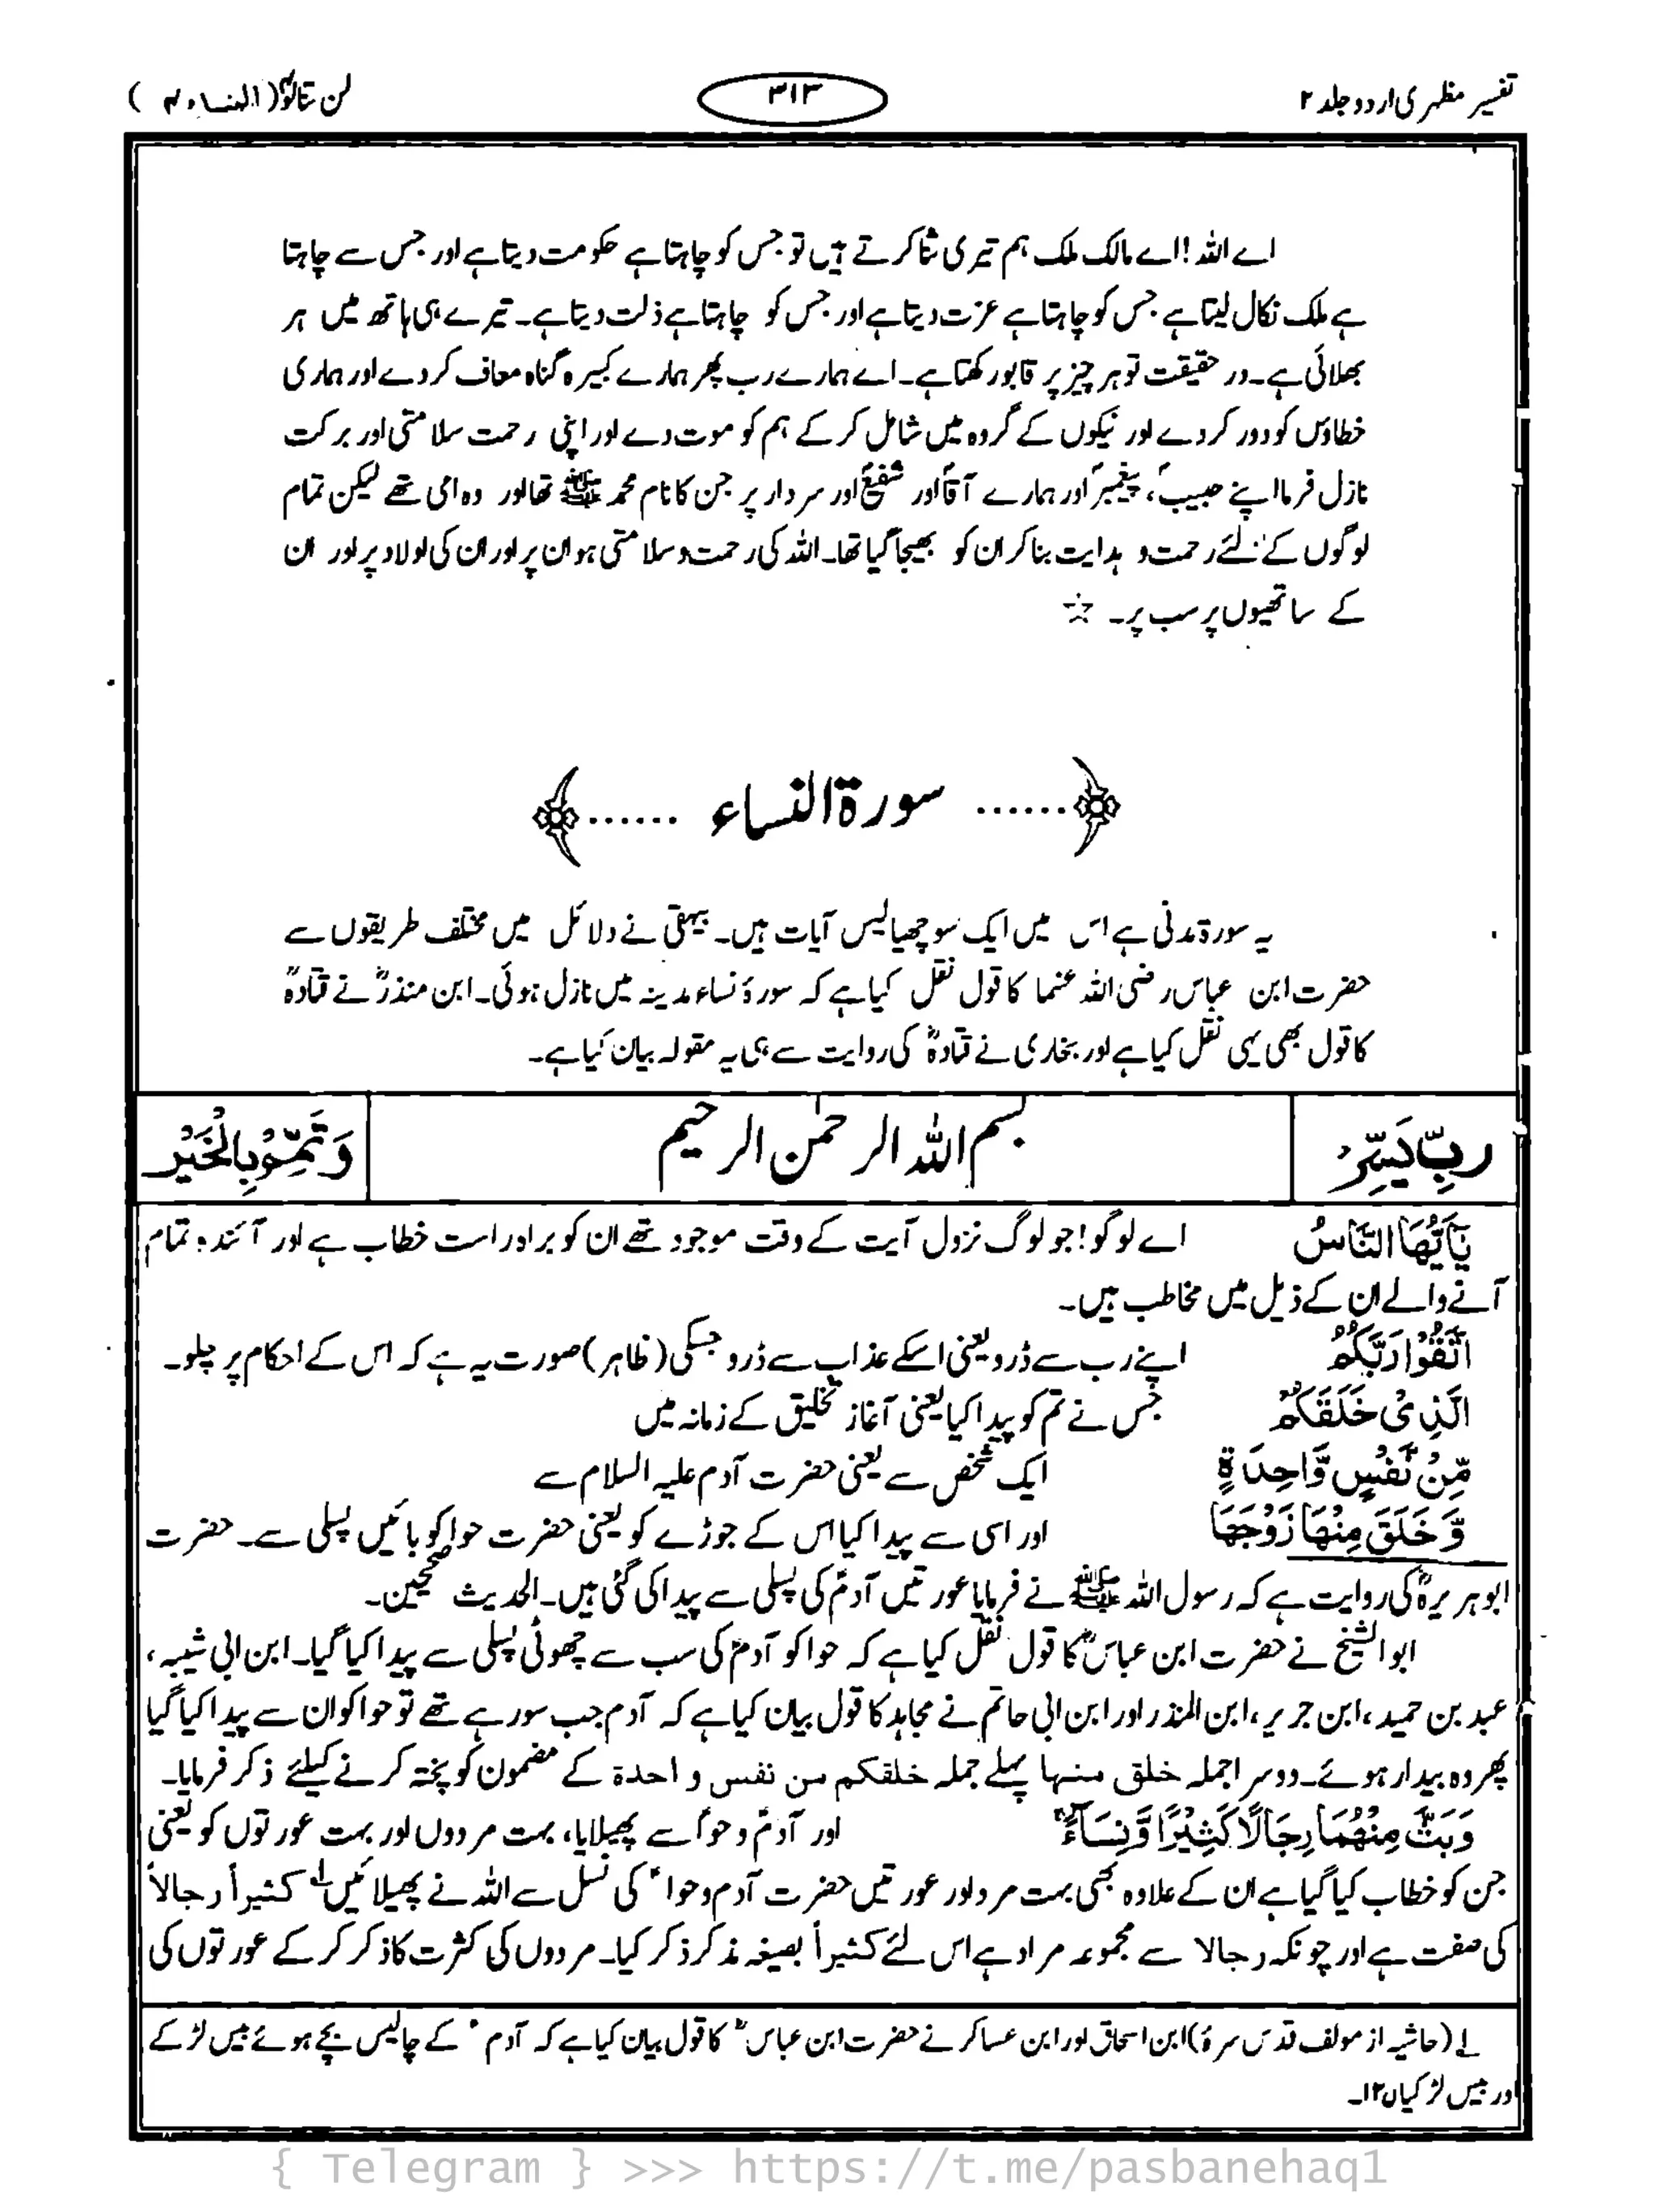 تفسیر مظہری اردو جلد ۲
۳۱۳
لن تنالوا (النساء ۴)
اے اللہ! اے مالک ملک ہم تیری ثنا کرتے ہیں تو جس کو چاہتا ہے حکومت دیتا ہے اور جس سے چاہتا
ہے ملک نکال لیتا ہے جس کو چاہتا ہے عزت دیتا ہے اور جس کو چاہتا ہے ذلت دیتا ہے۔ تیرے ہی ہاتھ میں ہر
بھلائی ہے۔ در حقیقت تو ہر چیز پر قابو رکھتا ہے۔ اے ہمارے رب پھر ہمارے کبیرہ گناہ معاف کر دے اور ہماری
خطاؤں کو دور کر دے اور نیکوں کے گروہ میں شامل کر کے ہم کو موت دے اور اپنی رحمت سلامتی اور برکت
نازل فرما اپنے حبیبؐ، پیغمبرؐ اور ہمارے آقاؐ اور شفیعؐ اور سردار پر جن کا نام محمد ﷺ تھا اور وہ امی تھے لیکن تمام
لوگوں کے لئے رحمت و ہدایت بنا کر ان کو بھیجا گیا تھا۔ اللہ کی رحمت و سلامتی ہو ان پر اور ان کی اولاد پر اور ان
کے ساتھیوں پر سب پر۔ ☆
﴿...... سورۃ النساء ......﴾
یہ سورۃ مدنی ہے اس میں ایک سو چھیالیس آیات ہیں۔ بیہقی نے دلائل میں مختلف طریقوں سے
حضرت ابن عباس رضی اللہ عنہما کا قول نقل کیا ہے کہ سورۂ نساء مدینہ میں نازل ہوئی۔ ابن منذرؒ نے قتادہؒ
کا قول بھی یہی نقل کیا ہے اور بخاری نے قتادہؒ کی روایت سے ہی یہ مقولہ بیان کیا ہے۔
رَبِّ يَسِّرْ
بسم اللہ الرحمٰن الرحیم
وَتَمِّمْ بِالْخَيْر
يٰۤاَيُّهَا النَّاسُ اے لوگو! جو لوگ نزول آیت کے وقت موجود تھے ان کو براہ راست خطاب ہے اور آئندہ تمام
آنے والے ان کے ذیل میں مخاطب ہیں۔
اتَّقُوْا رَبَّكُمُ اپنے رب سے ڈرو یعنی اسکے عذاب سے ڈرو جسکی (ظاہر) صورت یہ ہے کہ اس کے احکام پر چلو۔
الَّذِىْ خَلَقَكُمْ جس نے تم کو پیدا کیا یعنی آغاز تخلیق کے زمانہ میں
مِّنْ نَّفْسٍ وَّاحِدَةٍ ایک شخص سے یعنی حضرت آدم علیہ السلام سے
وَّ خَلَقَ مِنْهَا زَوْجَهَا اور اسی سے پیدا کیا اس کے جوڑے کو یعنی حضرت حوا کو بائیں پسلی سے۔ حضرت
ابو ہریرہؓ کی روایت ہے کہ رسول اللہ ﷺ نے فرمایا عورتیں آدمؑ کی پسلی سے پیدا کی گئی ہیں۔ الحدیث صحیحین۔
ابو الشیخ نے حضرت ابن عباسؓ کا قول نقل کیا ہے کہ حوا کو آدمؑ کی سب سے چھوٹی پسلی سے پیدا کیا گیا۔ ابن ابی شیبہ،
عبد بن حمید، ابن جریر، ابن المنذر اور ابن ابی حاتم نے مجاہد کا قول بیان کیا ہے کہ آدم جب سو رہے تھے تو حوا کو ان سے پیدا کیا گیا
پھر وہ بیدار ہوئے۔ دوسرا جملہ خلق منہا پہلے جملہ خلقکم من نفس و احدۃ کے مضمون کو پختہ کرنے کیلئے ذکر فرمایا۔
وَبَثَّ مِنْهُمَا رِجَالًا كَثِيْرًا وَّنِسَآءً اور آدمؑ و حواؑ سے پھیلایا، بہت مردوں اور بہت عورتوں کو یعنی
جن کو خطاب کیا گیا ہے ان کے علاوہ بھی بہت مرد اور عورتیں حضرت آدم و حواؑ کی نسل سے اللہ نے پھیلائیں ۱؎ کثیراً رجالاً
کی صفت ہے اور چونکہ رجالا سے مجموعہ مراد ہے اس لئے کثیراً بصیغہ مذکر ذکر کیا۔ مردوں کی کثرت کا ذکر کر کے عورتوں کی
۱؎ (حاشیہ از مولف قدس سرہٗ) ابن اسحاق اور ابن عساکر نے حضرت ابن عباسؓ کا قول بیان کیا ہے کہ آدمؑ کے چالیس بچے ہوئے بیس لڑکے
اور بیس لڑکیاں ۱۲۔
{ Telegram } >>> https://t.me/pasbanehaq1